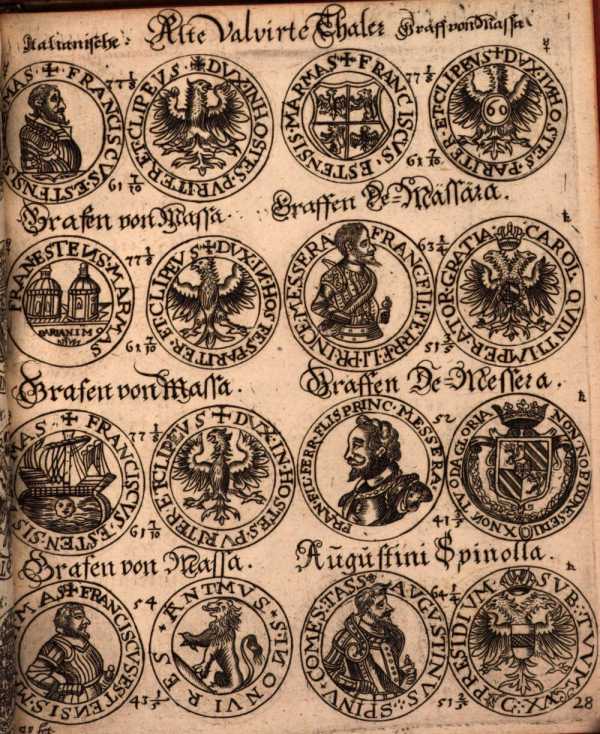 Italianische: Alte Valvirte Thaler Graff von Massa
MAS ✠ FRANCISCVS·ESTENSIS· 77 1/8 61 7/10
ET·CLIPEVS ✠ DVX·IN·HOSTES·PVRITER·
MARMAS ✠ FRANCISCVS·ESTENSIS· 77 1/8 61 7/10
ET·CLIPENS ✠ DVX·IN·HOSTES·PARITER·
Grafen von Massa. Graffen De=Massara.
FRAN·ESTENS·MARMAS 77 1/8 61 7/10
PARIA·NIMO
ET·CLIPEVS ✠ DVX·IN·HOS
PRINC·MESSERA FRANC·FIL·FERR·F·L· 63 1/4
CAROL·QVINTI·IMPERATOR·GRATIA
Grafen von Massa. Graffen De=Messera.
MAS ✠ FRANCISCVS·ESTENSIS 77 1/8 61 7/10
ET·CLIPEVS ✠ DVX·IN·HOSTES·PVRITER·
FRAN·FIL·FERR·FLIS·PRINC·MESSERA 52
NON·NOBIS·DNE·SED·NOI·TVO·DA·GLORIA
Grafen von Massa. Augustini Spinolla.
MAS ✠ FRANCISCVS·ESTENSIS·M 54
NTMVS·S·NON·VIRES
AVGVSTINVS·SPINV·COMES·TASS 64 1/4
SVB·TVVM·PRESIDIVM
28